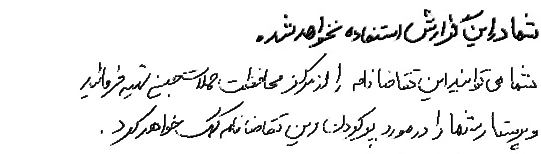 شما در این گزارش استفاده نخواهد شد.
شما می توانید این تقاضا نامه را از مرکز محافظت حملات جنسی تهیه فرمائید
و پرستار شما را در مورد پر کردن این تقاضا نامه کمک خواهد کرد.